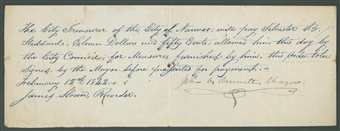 The City Treasurer of the City of Nauvoo, will pay Silvester B.
Stoddard, Eleven Dollars and fifty Cents, allowed him this day by
the City Council for Measures furnished by him, this Order to be
Signed by the Mayor before presented for payment.
February 12th 1842.
James Sloan, Recorder.
John C. Bennett, Mayor.